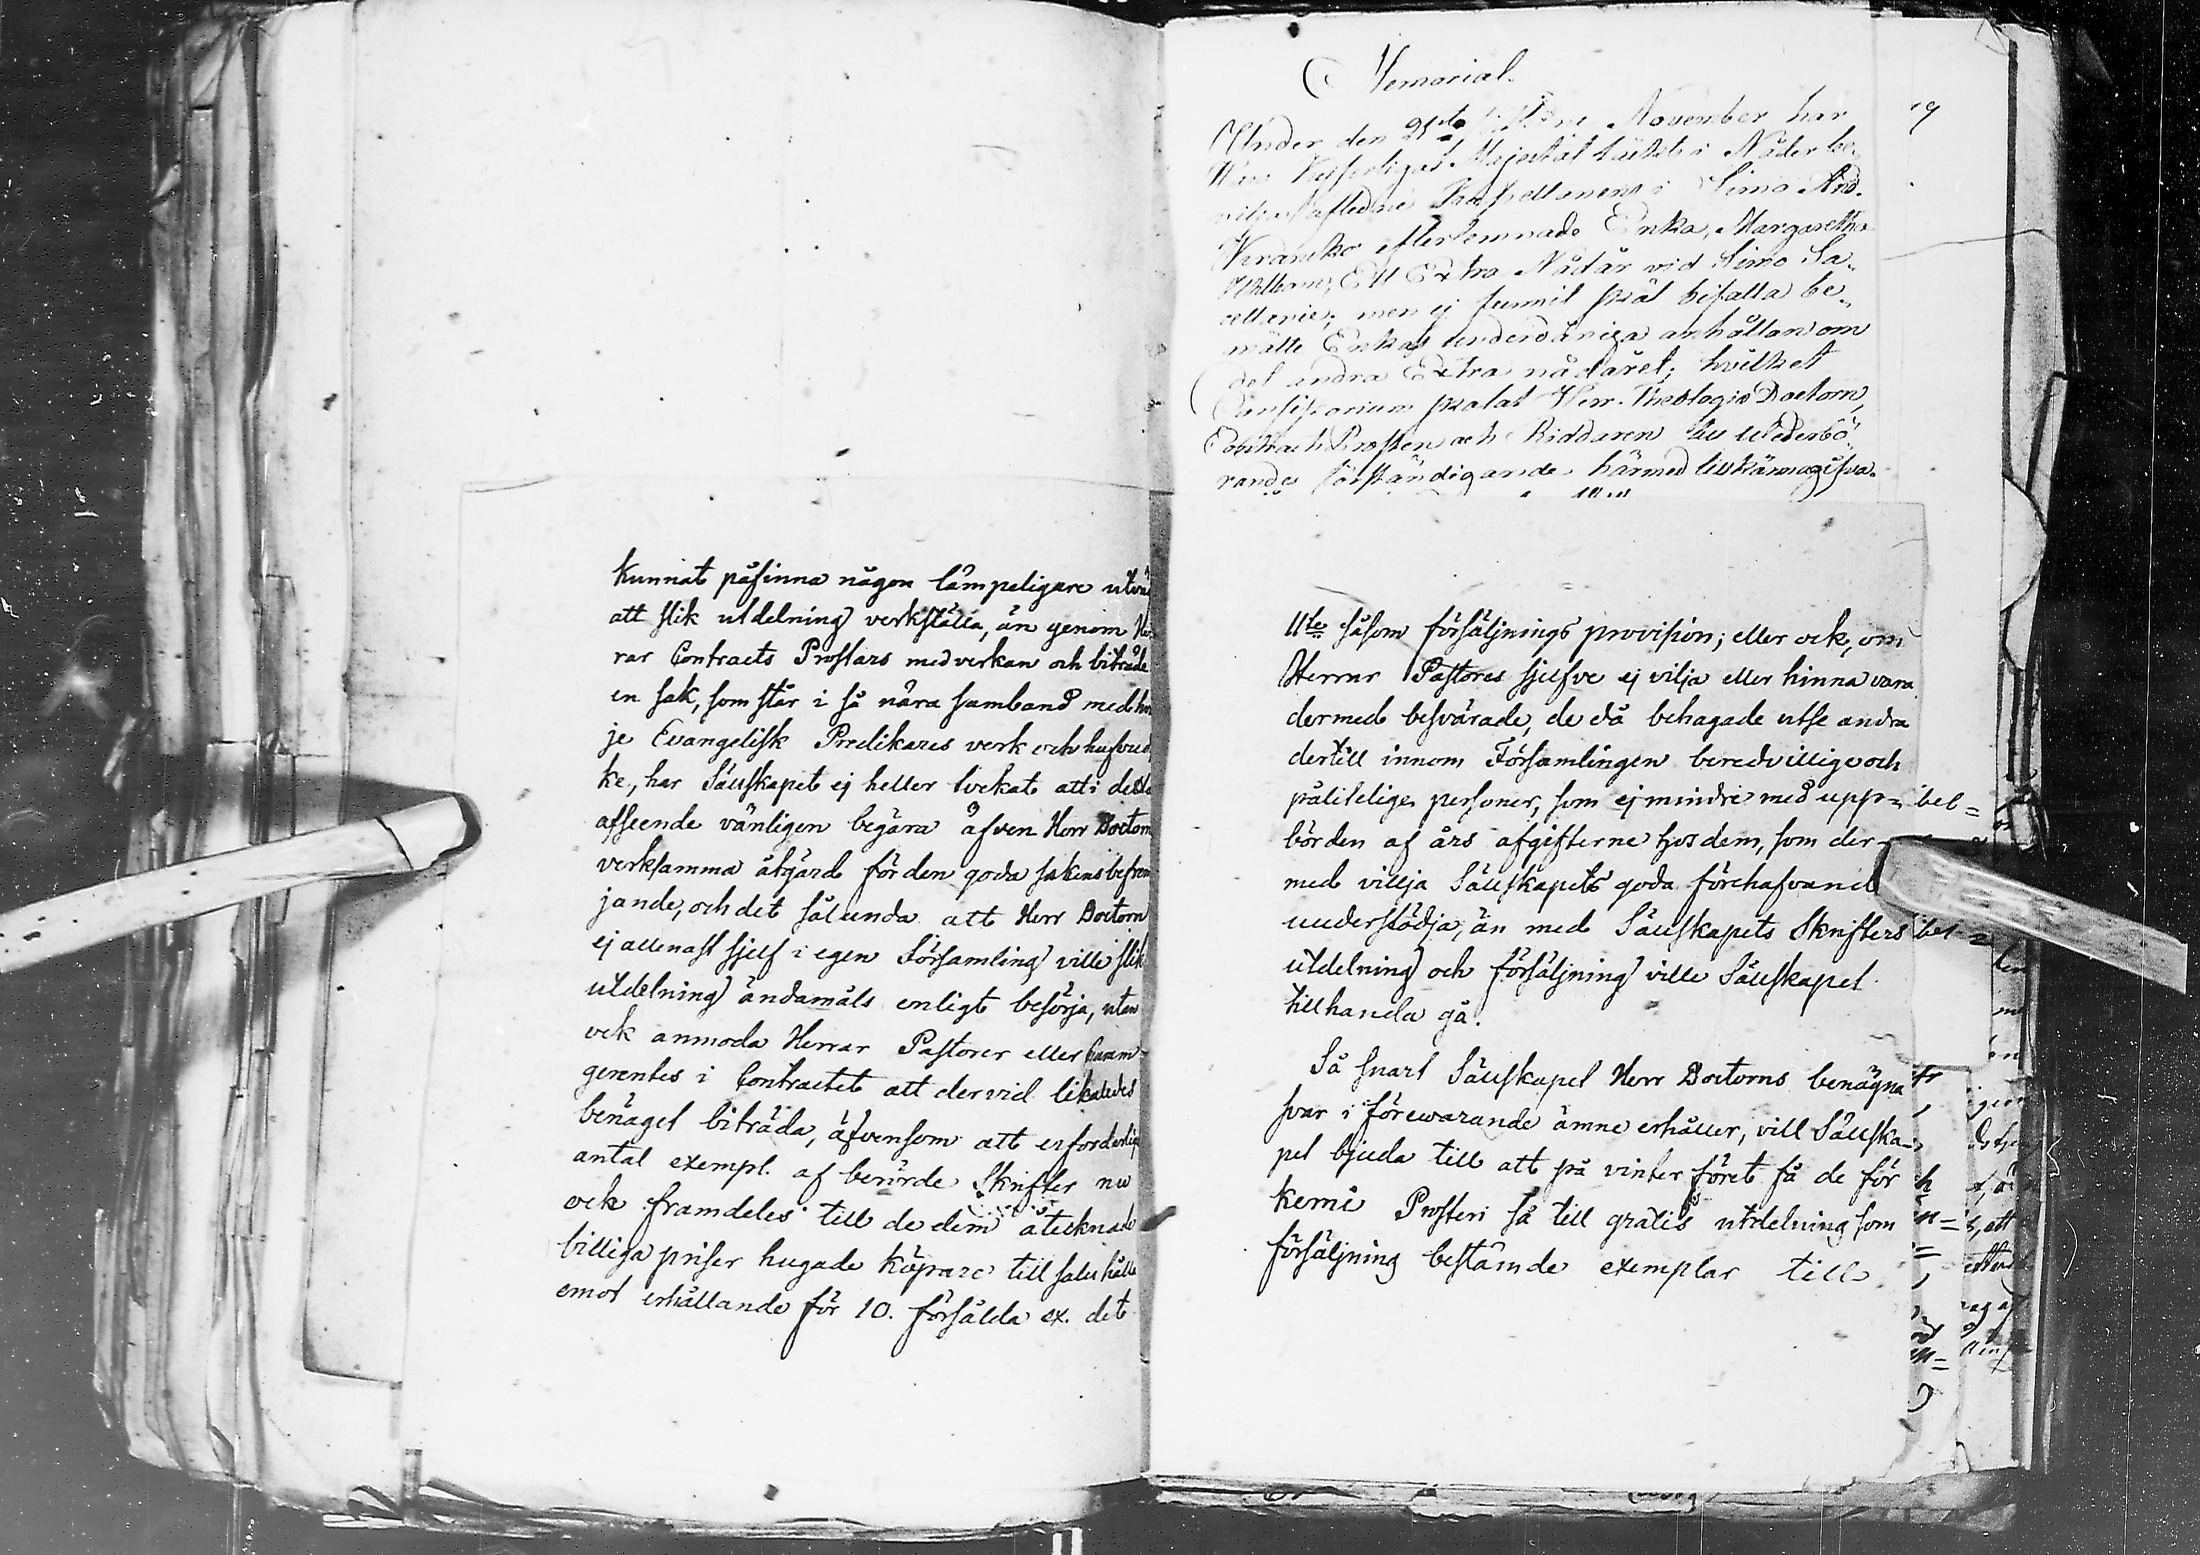 kunnat påfinna någon lämpeligare utväg
att slik utdelning verkställa, än genom Her
rar Contracts Prostars medverkan och biträde
en sak, som står i så nära samband med hvar
je Evangelisk Predikares verk och
ke, har Sällskapet ej heller tvekat att i detta
afseende vänligen begära äfven Herr Doctorns
verksamma åtgärd för den goda sakens befräm
jande, och det sålunda att Herr Doctorn
ej allenast sjelf i egen Församling ville slik
utdelning ändamåls enligt besörja, utan
ock anmoda Herrar Pastorer eller
gerentes i Contractet att dervid likaledes
benäget biträda, äfvensom att erforderligt
antal exempl. af berörde Skrifter nu
ock framdeles till de dem åtecknade
billiga priser hugade köpare till salu hålla
emot erhållande för 10. försålda ex. det
Memorial.
Under den 21sta sistledne November har
Hans Kejserliga Majestät täckts i Nåder be-
vilja aflidne Kapellanens i Simo And.
efterlemnade Enka, Margaretha
Ett Extra Nådår vid Simo Sa-
cellanie; men ej funnit skäl bifalla be-
mälte Enkas underdåniga anhållan om
det andra Extra nådåret; hvilket
Consistorium skolat Herr Theologiæ Doctorn,
Contracts Prosten och Riddaren till vederbö-
randes förständigande härmed tillkännagifva.
19
11te såsom försäljnings provision; eller ock, om
Herrar Pastores sjelfve ej vilja eller hinna vara
dermed besvärade, de då behagade utse andra
dertill innom Församlingen beredvillige och
pålitelige personer, som ej mindre med upp-
börden af års afgifterne hos dem, som der-
med vilja Sällskapets goda förehafvand
understödja, än med Sällskapets Skrifters
utdelning och försäljning ville Sällskapet
tillhanda gå.
Så snart Sällskapet Herr Doctorns benägna
svar i förewarande ämne erhåller, vill Sällska-
pet bjuda till att på vinterföret få de för
Kemi Prosteri så till gratis utdelning som
försäljning bestämde exemplar till